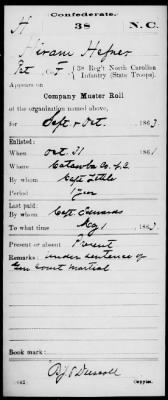 Confederate.
H 38 N.C.
Hiram Hefner
Pvt F, 38 Reg't North Carolina
Infantry (State Troops).
Appears on
Company Muster Roll
of the organization named above,
for Sept & Oct. 1863.
Enlisted:
When Oct. 31 1861
Where Catawba Co. N.C.
By whom Capt Little
Period 1 year
Last paid:
By whom Capt. Edwards
To what time Aug 1 1863
Present or absent Present
Remarks: Under sentence of
Gen Court Martial
Book mark:
Copyist.